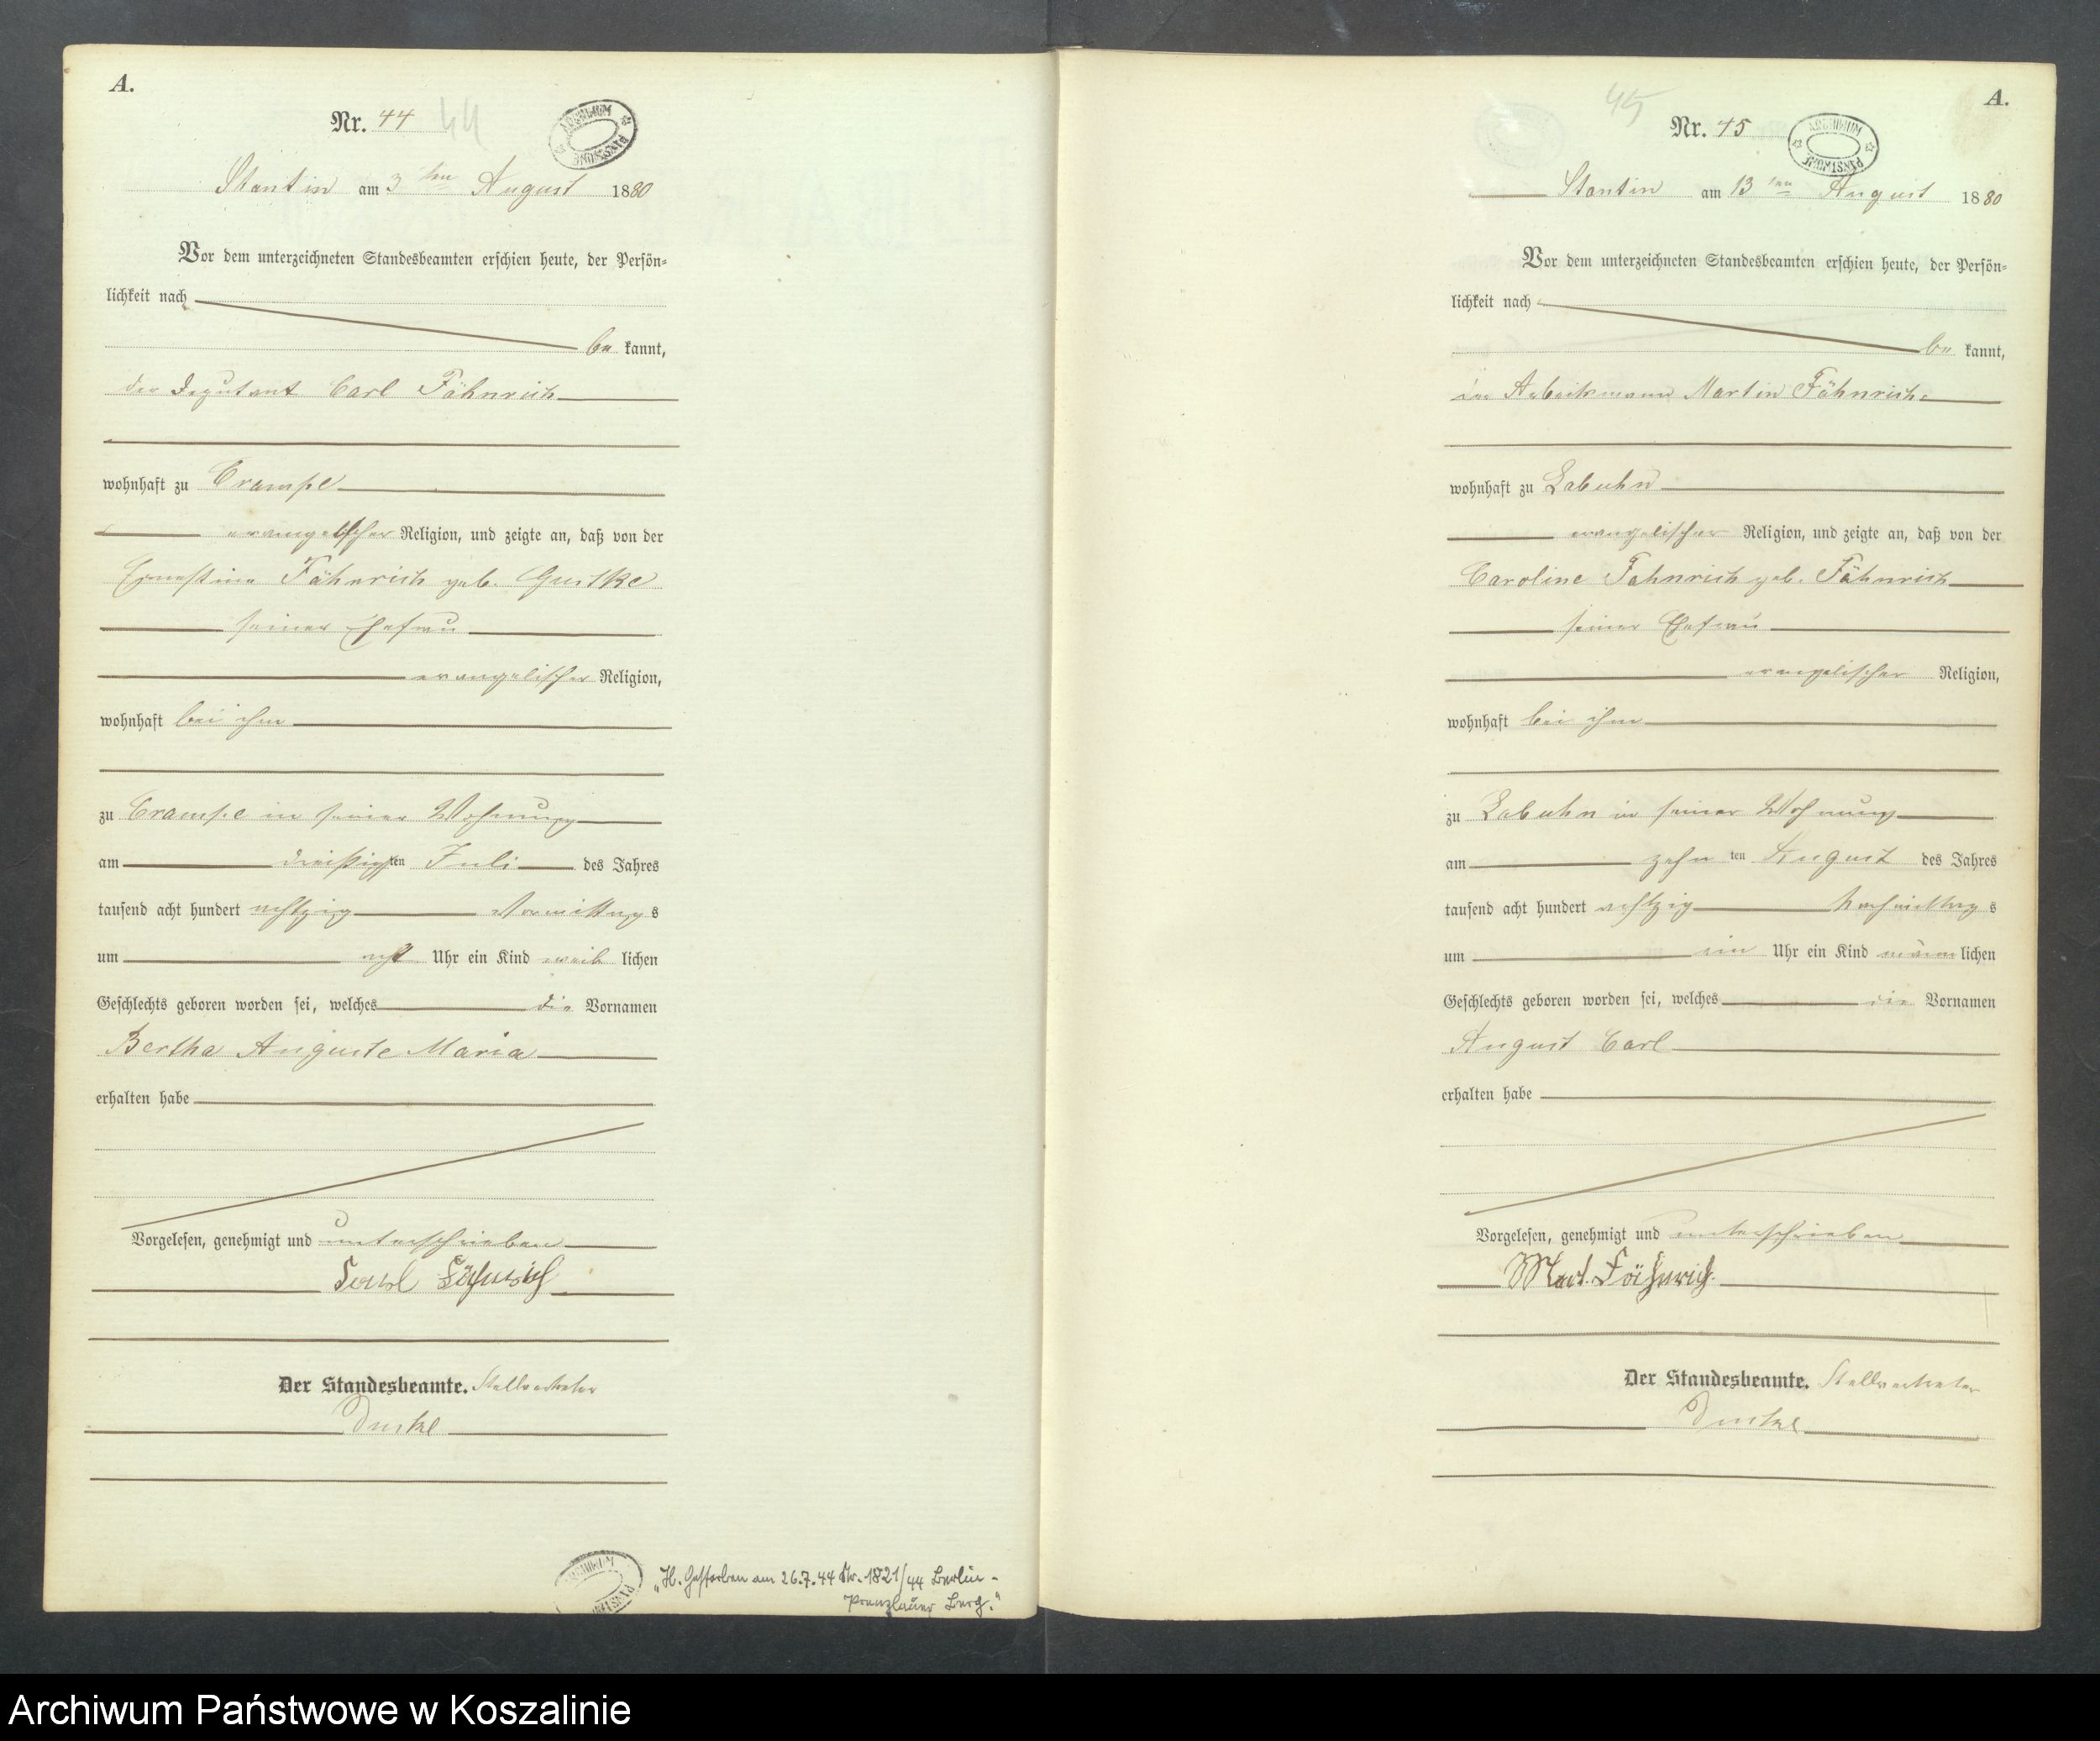 A.
Nr. 44 44
ARCHIWUM PAŃSTWOWE
Stantin am 3 ten August 1880
Vor dem unterzeichneten Standesbeamten erschien heute, der Persön=
lichkeit nach
be kannt,
der Deputant Carl Fähnrich
wohnhaft zu Crampe
evangelischer Religion, und zeigte an, daß von der
Ernestine Fähnrich geb. Guske
seiner Ehefrau
evangelischer Religion,
wohnhaft bei ihm
zu Crampe in seiner Wohnung
am dreißigsten Juli des Jahres
tausend acht hundert achtzig Vormittags
um acht Uhr ein Kind weib lichen
Geschlechts geboren worden sei, welches die Vornamen
Bertha Auguste Maria
erhalten habe
Vorgelesen, genehmigt und unterschrieben
Carl Fähnrich
Der Standesbeamte. Stellvertreter
ARCHIWUM PAŃSTWOWE
„H. Gestorben am 26.7.44 Nr. 1821/44 Berlin-
Prenzlauer Berg."
A.
45
Nr. 45
ARCHIWUM PAŃSTWOWE
Stantin am 13 ten August 1880
Vor dem unterzeichneten Standesbeamten erschien heute, der Persön=
lichkeit nach
be kannt,
der Arbeitsmann Martin Fähnrich
wohnhaft zu Labuhn
evangelischer Religion, und zeigte an, daß von der
Caroline Fähnrich geb. Fähnrich
seiner Ehefrau
evangelischer Religion,
wohnhaft bei ihm
zu Labuhn in seiner Wohnung
am zehn ten August des Jahres
tausend acht hundert achtzig Nachmittag s
um ein Uhr ein Kind männ lichen
Geschlechts geboren worden sei, welches die Vornamen
August Carl
erhalten habe
Vorgelesen, genehmigt und unterschrieben
Mart. Fähnrich.
Der Standesbeamte. Stellvertreter
Archiwum Państwowe w Koszalinie